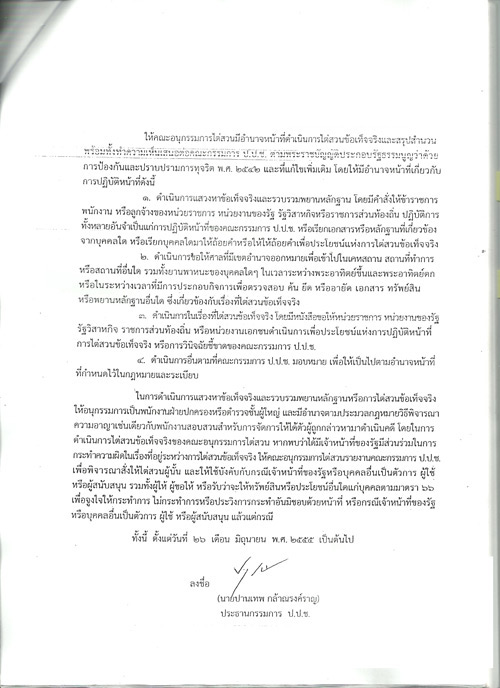 ให้คณะอนุกรรมการไต่สวนมีอำนาจหน้าที่ดำเนินการไต่สวนข้อเท็จจริงและสรุปสำนวน
พร้อมทั้งทำความเห็นเสนอต่อคณะกรรมการ ป.ป.ช. ตามพระราชบัญญัติประกอบรัฐธรรมนูญว่าด้วย
การป้องกันและปราบปรามการทุจริต พ.ศ. ๒๕๔๒ และที่แก้ไขเพิ่มเติม โดยให้มีอำนาจหน้าที่เกี่ยวกับ
การปฏิบัติหน้าที่ดังนี้
๑. ดำเนินการแสวงหาข้อเท็จจริงและรวบรวมพยานหลักฐาน โดยมีคำสั่งให้ข้าราชการ
พนักงาน หรือลูกจ้างของหน่วยราชการ หน่วยงานของรัฐ รัฐวิสาหกิจหรือราชการส่วนท้องถิ่น ปฏิบัติการ
ทั้งหลายอันจำเป็นแก่การปฏิบัติหน้าที่ของคณะกรรมการ ป.ป.ช. หรือเรียกเอกสารหรือหลักฐานที่เกี่ยวข้อง
จากบุคคลใด หรือเรียกบุคคลใดมาให้ถ้อยคำหรือให้ให้ถ้อยคำเพื่อประโยชน์แห่งการไต่สวนข้อเท็จจริง
๒. ดำเนินการขอให้ศาลที่มีเขตอำนาจออกหมายเพื่อเข้าไปในเคหสถาน สถานที่ทำการ
หรือสถานที่อื่นใด รวมทั้งยานพาหนะของบุคคลใดๆ ในเวลาระหว่างพระอาทิตย์ขึ้นและพระอาทิตย์ตก
หรือในระหว่างเวลาที่มีการประกอบกิจการเพื่อตรวจสอบ ค้น ยึด หรืออายัด เอกสาร ทรัพย์สิน
หรือพยานหลักฐานอื่นใด ซึ่งเกี่ยวข้องกับเรื่องที่ไต่สวนข้อเท็จจริง
๓. ดำเนินการในเรื่องที่ไต่สวนข้อเท็จจริง โดยมีหนังสือขอให้หน่วยราชการ หน่วยงานของรัฐ
รัฐวิสาหกิจ ราชการส่วนท้องถิ่น หรือหน่วยงานเอกชนดำเนินการเพื่อประโยชน์แห่งการปฏิบัติหน้าที่
การไต่สวนข้อเท็จจริง หรือการวินิจฉัยชี้ขาดของคณะกรรมการ ป.ป.ช.
๔. ดำเนินการอื่นตามที่คณะกรรมการ ป.ป.ช. มอบหมาย เพื่อให้เป็นไปตามอำนาจหน้าที่
ที่กำหนดไว้ในกฎหมายและระเบียบ
ในการดำเนินการแสวงหาข้อเท็จจริงและรวบรวมพยานหลักฐานหรือการไต่สวนข้อเท็จจริง
ให้อนุกรรมการเป็นพนักงานฝ่ายปกครองหรือตำรวจชั้นผู้ใหญ่ และมีอำนาจตามประมวลกฎหมายวิธีพิจารณา
ความอาญาเช่นเดียวกับพนักงานสอบสวนสำหรับการจัดการให้ได้ตัวผู้ถูกกล่าวหามาดำเนินคดี โดยในการ
ดำเนินการไต่สวนข้อเท็จจริงของคณะอนุกรรมการไต่สวน หากพบว่าได้มีเจ้าหน้าที่ของรัฐมีส่วนร่วมในการ
กระทำความผิดในเรื่องที่อยู่ระหว่างการไต่สวนข้อเท็จจริง ให้คณะอนุกรรมการไต่สวนรายงานคณะกรรมการ ป.ป.ช.
เพื่อพิจารณาสั่งให้ไต่สวนผู้นั้น และให้ใช้บังคับกับกรณีเจ้าหน้าที่ของรัฐหรือบุคคลอื่นเป็นตัวการ ผู้ใช้
หรือผู้สนับสนุน รวมทั้งผู้ให้ ผู้ขอให้ หรือรับว่าจะให้ทรัพย์สินหรือประโยชน์อื่นใดแก่บุคคลตามมาตรา ๖๖
เพื่อจูงใจให้กระทำการ ไม่กระทำการหรือประวิงการกระทำอันมิชอบด้วยหน้าที่ หรือกรณีเจ้าหน้าที่ของรัฐ
หรือบุคคลอื่นเป็นตัวการ ผู้ใช้ หรือผู้สนับสนุน แล้วแต่กรณี
ทั้งนี้ ตั้งแต่วันที่ ๒๖ เดือน มิถุนายน พ.ศ. ๒๕๕๕ เป็นต้นไป
ลงชื่อ
(นายปานเทพ กล้าณรงค์ราญ)
ประธานกรรมการ ป.ป.ช.